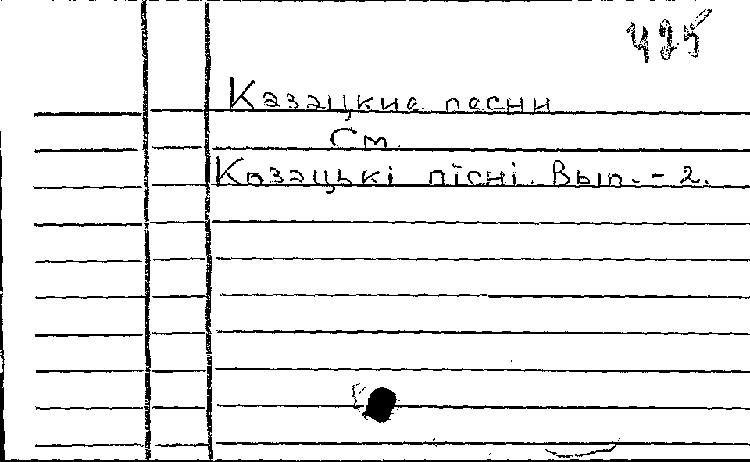 425
Казацкие песни
См.
Козацькі пісні. Вып. - 2.